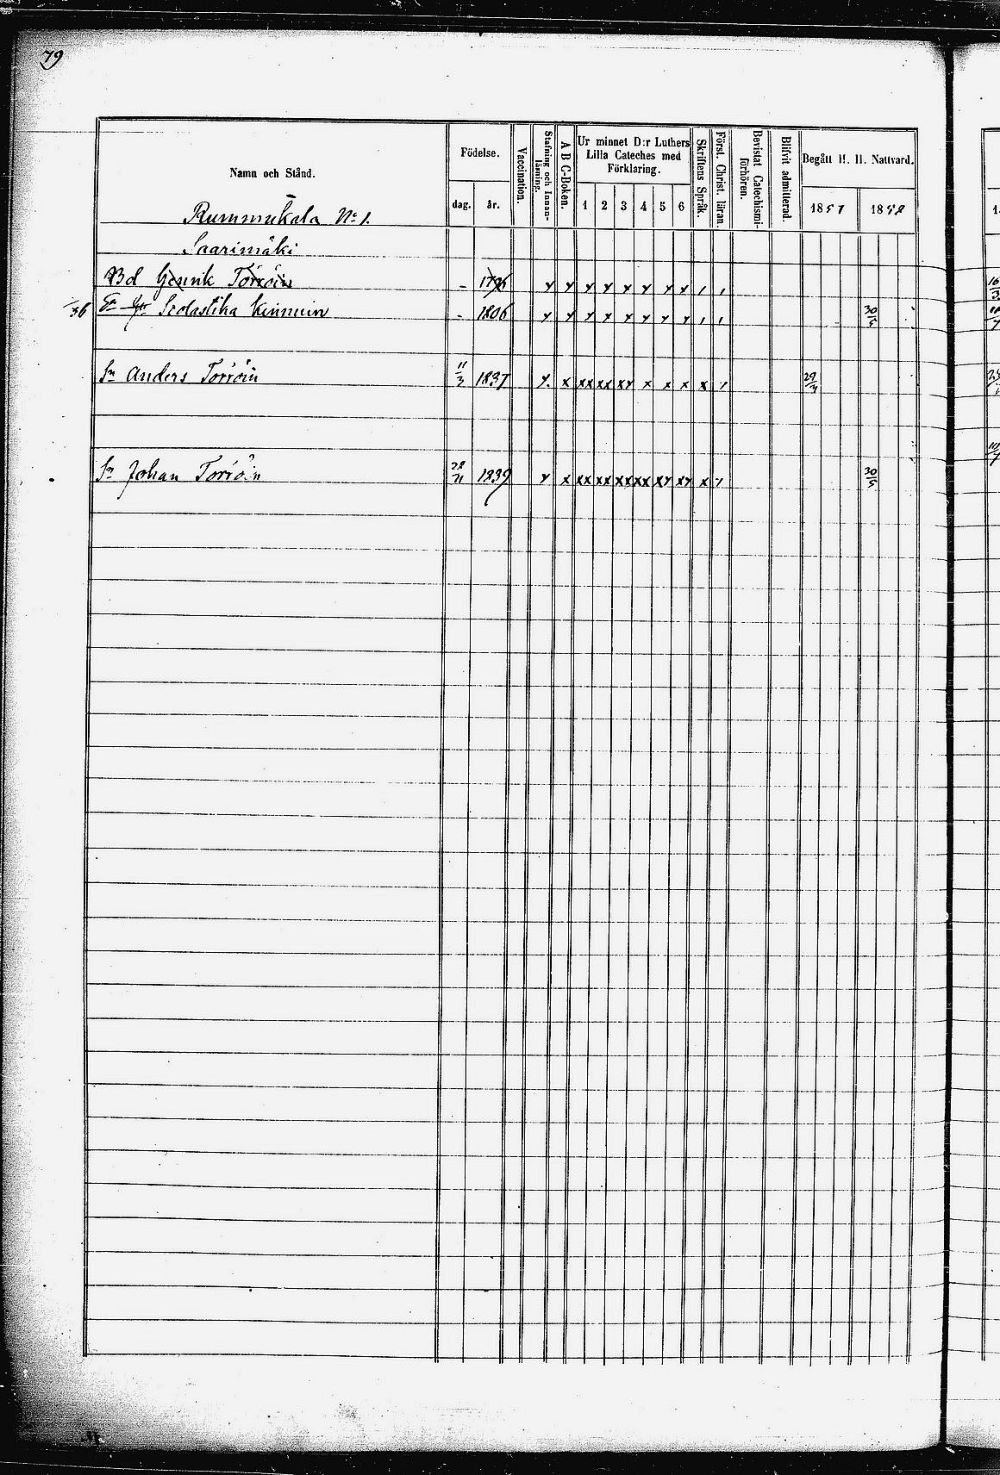 79
Namn och Stånd.
Födelse.
dag. år.
Vaccination.
Stafning och Innanläsning.
A B C-Boken.
Ur minnet D:r Luthers Lilla Cateches med Förklaring.
1 2 3 4 5 6
Skriftens Språk.
Först. Christ. läran.
Bevistat Catechismi-förhören.
Blifvit admitterad.
Begått H. H. Nattvard.
1857 1858
Rummukala No 1.
Saarimäki
Bd Henrik Törröin - 1796 y y y y y y y y / /
/36 Scolastika Kinnuin - 1806 y y y y y y y y / / 30/5
Sn Anders Torröin 11/3 1837 y x xx xx xy x x x x / 29/3
Sn Johan Torröin 28/11 1839 y x xx xx xx xx xy xy x y 30/5